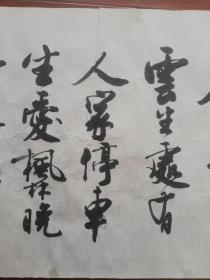 雲生處有
人家停車
坐愛楓林晚